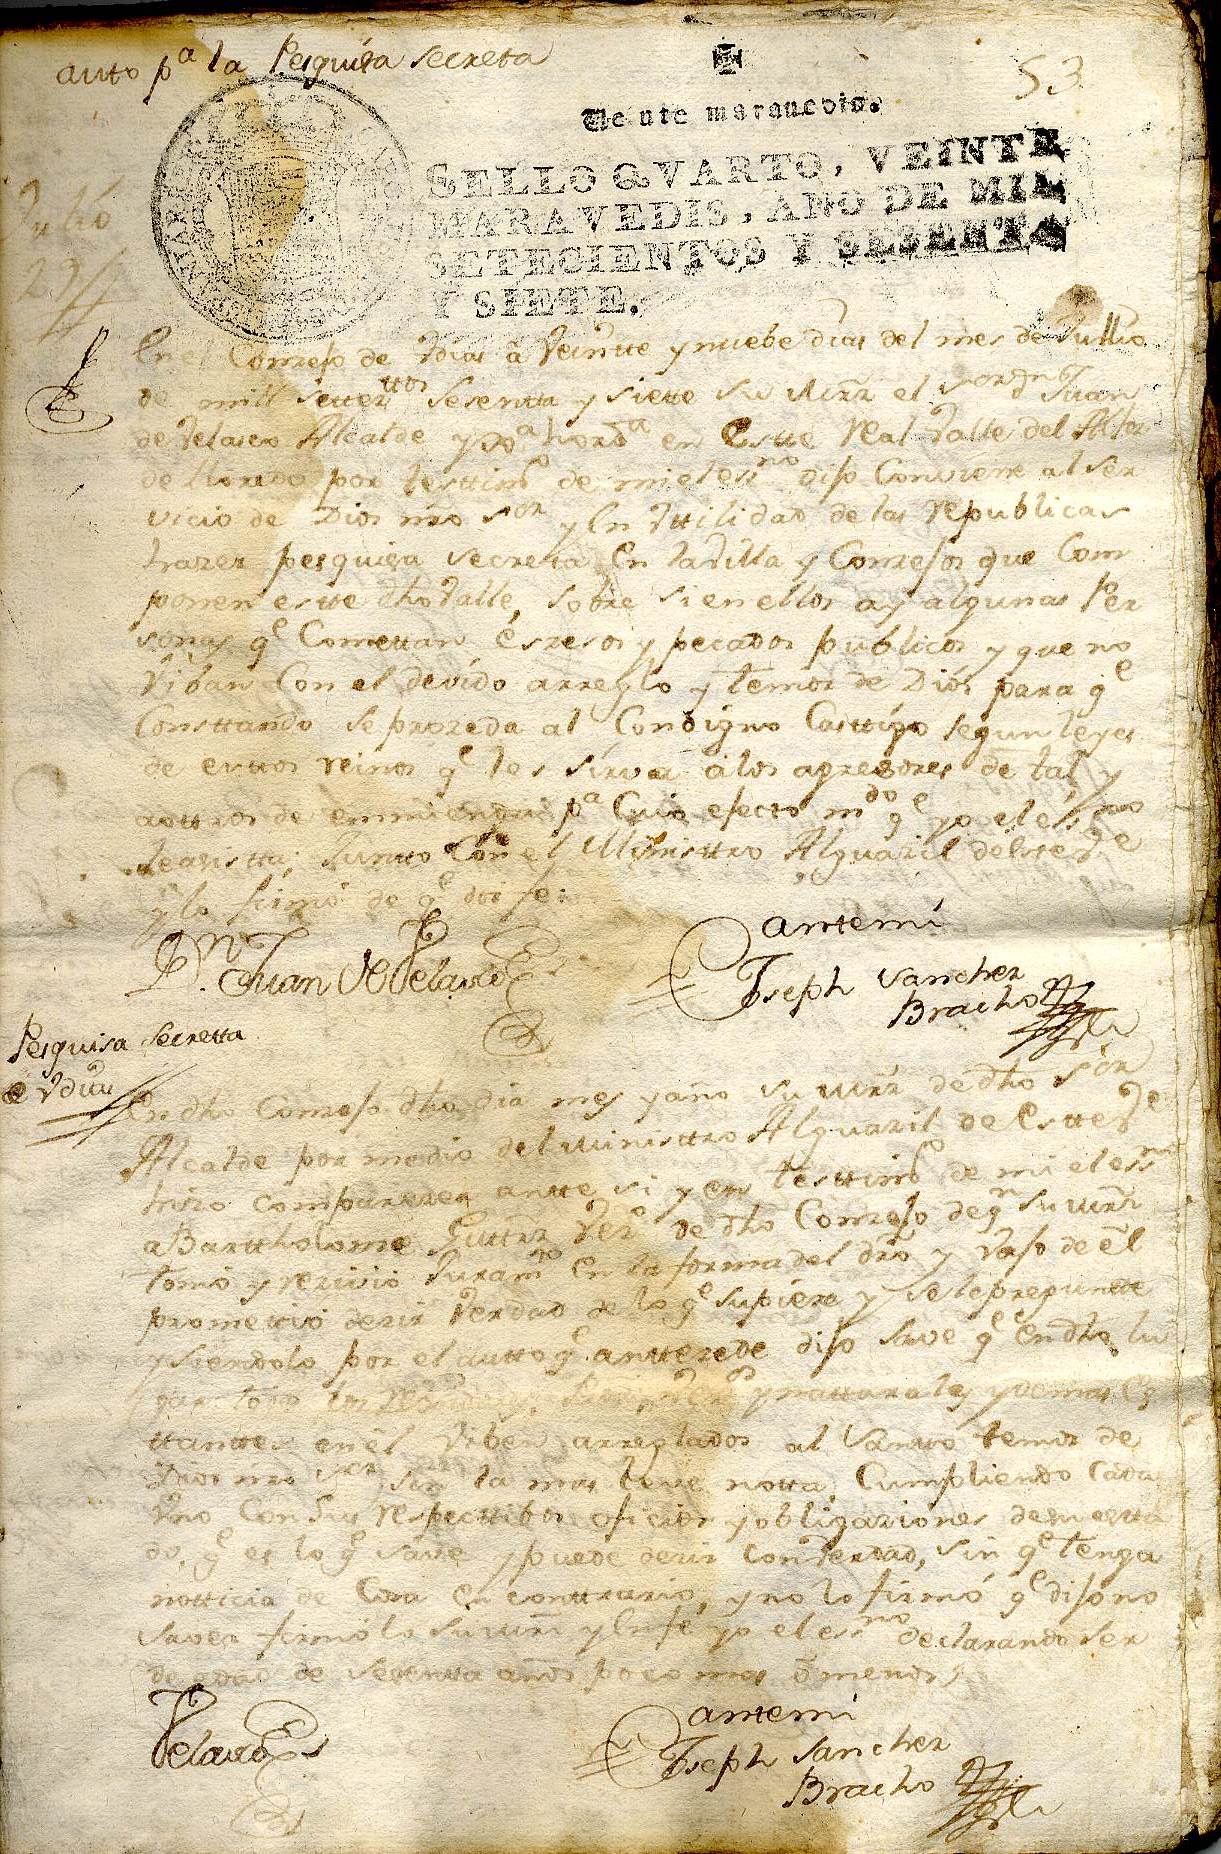 auto pª la Pesquisa secreta
53
Veinte maravedis.
SELLO QVARTO, VEINTE
MARAVEDIS, AÑO DE MIL
SETECIENTOS Y SESENTA
Y SIETE.
En el Conzejo de Vdias a Veintte y nuebe dias del mes de Jullio
de mill settezttos Sesentta y siette su mrz el Sor Dn Juan
de Velasco Alcalde y hordª en Estte Real Valle del Alfoz
de Lloredo por testtimº de mi el essno dijo Conviene al Ser
vicio de Dios nro Sor y En Vttilidad de las Republicas
hazer pesquisa secreta En la Villa y Conzejos que Com
ponen estte dho Valle, sobre si en ellos ay algunas Per
sonas qe Comettan Esresos y pecados publicos y que no
Viban Con el devido arreglo y temor de Dios para qe
Consttando se prozeda al Condigno Casttigo segun leyes
de esttos Reinos qe les sirva a los agresores de tal y
a ottros de emmienda pª Cuio efecto mdo qe yo el essno
le asistta Juntto Con el Ministtro Alguazil de este Ve
y lo firmó de qe doi fe
Dn. Juan de Velasco
antemi
Joseph Sanchez
Bracho
Pesquisa Secretta
e Vdias
En dho Conzejo dho dia mes y año su mrz de dho Sor
Alcalde por medio del Ministtro Alguazil de Estte Ve
hizo comparezer antte si y en testtimº de mi el essno
a Barttholome Guttrrz Vezº de dho Conzejo de qn su mrz
tomó y rezivió Juramto En la forma del dro y Vajo de el
promettió dezir Verdad de lo qe supiere y se le preguntte
y siendolo por el autto qe anttezede dijo save qe en dho lu
gar todos los y natturales y demas Es
ttanttes en el Viben arreglados al Santto temor de
Dios nro Sor sin la mas leve notta, Cumpliendo Cada
Vno Con sus respecttibos oficios y obligaziones de su estta
do, qe es lo qe save y puede dezir con Verdad, sin qe tenga
notticia de Cosa en conttrario, y no lo firmó qe dijo no
saver firmólo su mrz y En fe yo el essno declarando ser
de edad de Sesentta años poco mas o menos,
Velasco
antemi
Joseph Sanchez
Bracho